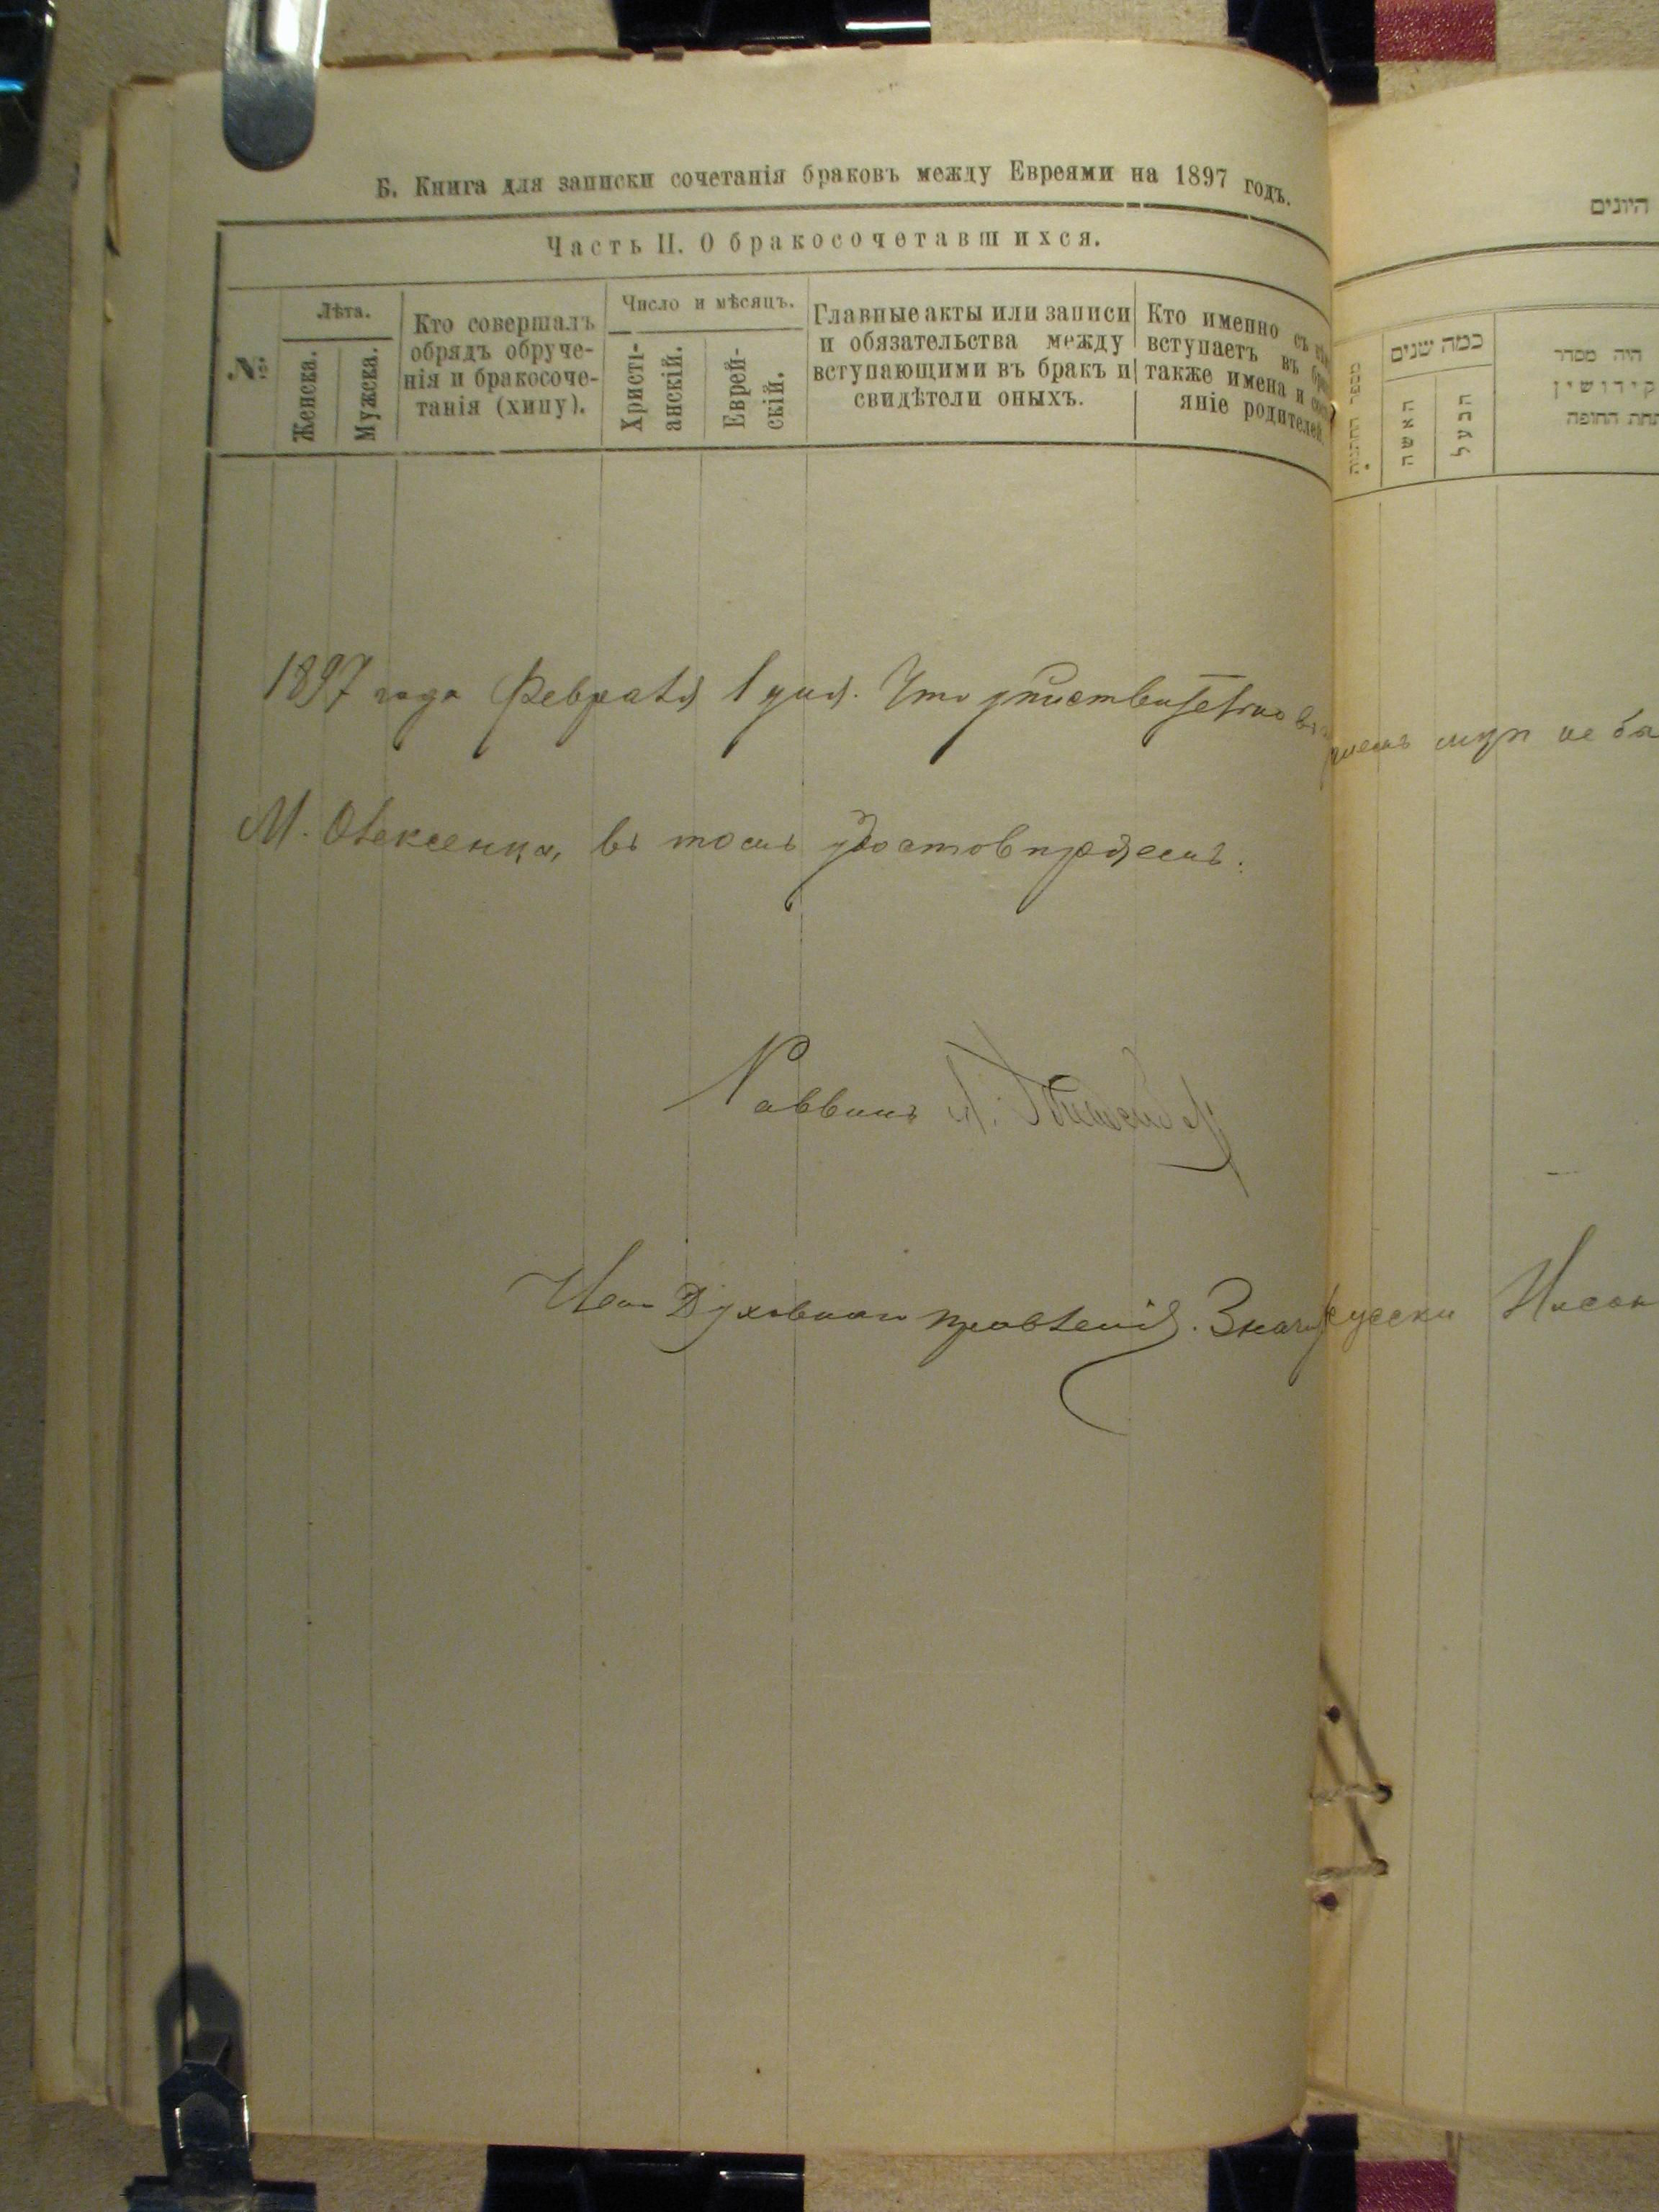 Б. Книга для записки сочетанія браковъ между Евреями на 1897 годъ.
Часть II. О бракосочетавшихся.
№
Лѣта.
Женска.
Мужска.
Кто совершалъ
обрядъ обруче-
нія и бракосоче-
танія (хипу).
Число и мѣсяцъ.
Христі-
анскій.
Еврей-
скій.
Главные акты или записи
и обязательства между
вступающими въ бракъ и
свидѣтели оныхъ.
Кто именно съ
вступаетъ въ
также имена и
яніе родителей.
היונים
מספר החתונות
כמה שנים
האשה
הבעל
היה מסדר
קידושין
תחת החופה
1897 года Февраля 1 дня. Что дѣйствительно въ не бы
М. Олексенца, въ томъ удостовѣряемъ.
Раввинъ
Духовнаго правленія. русски